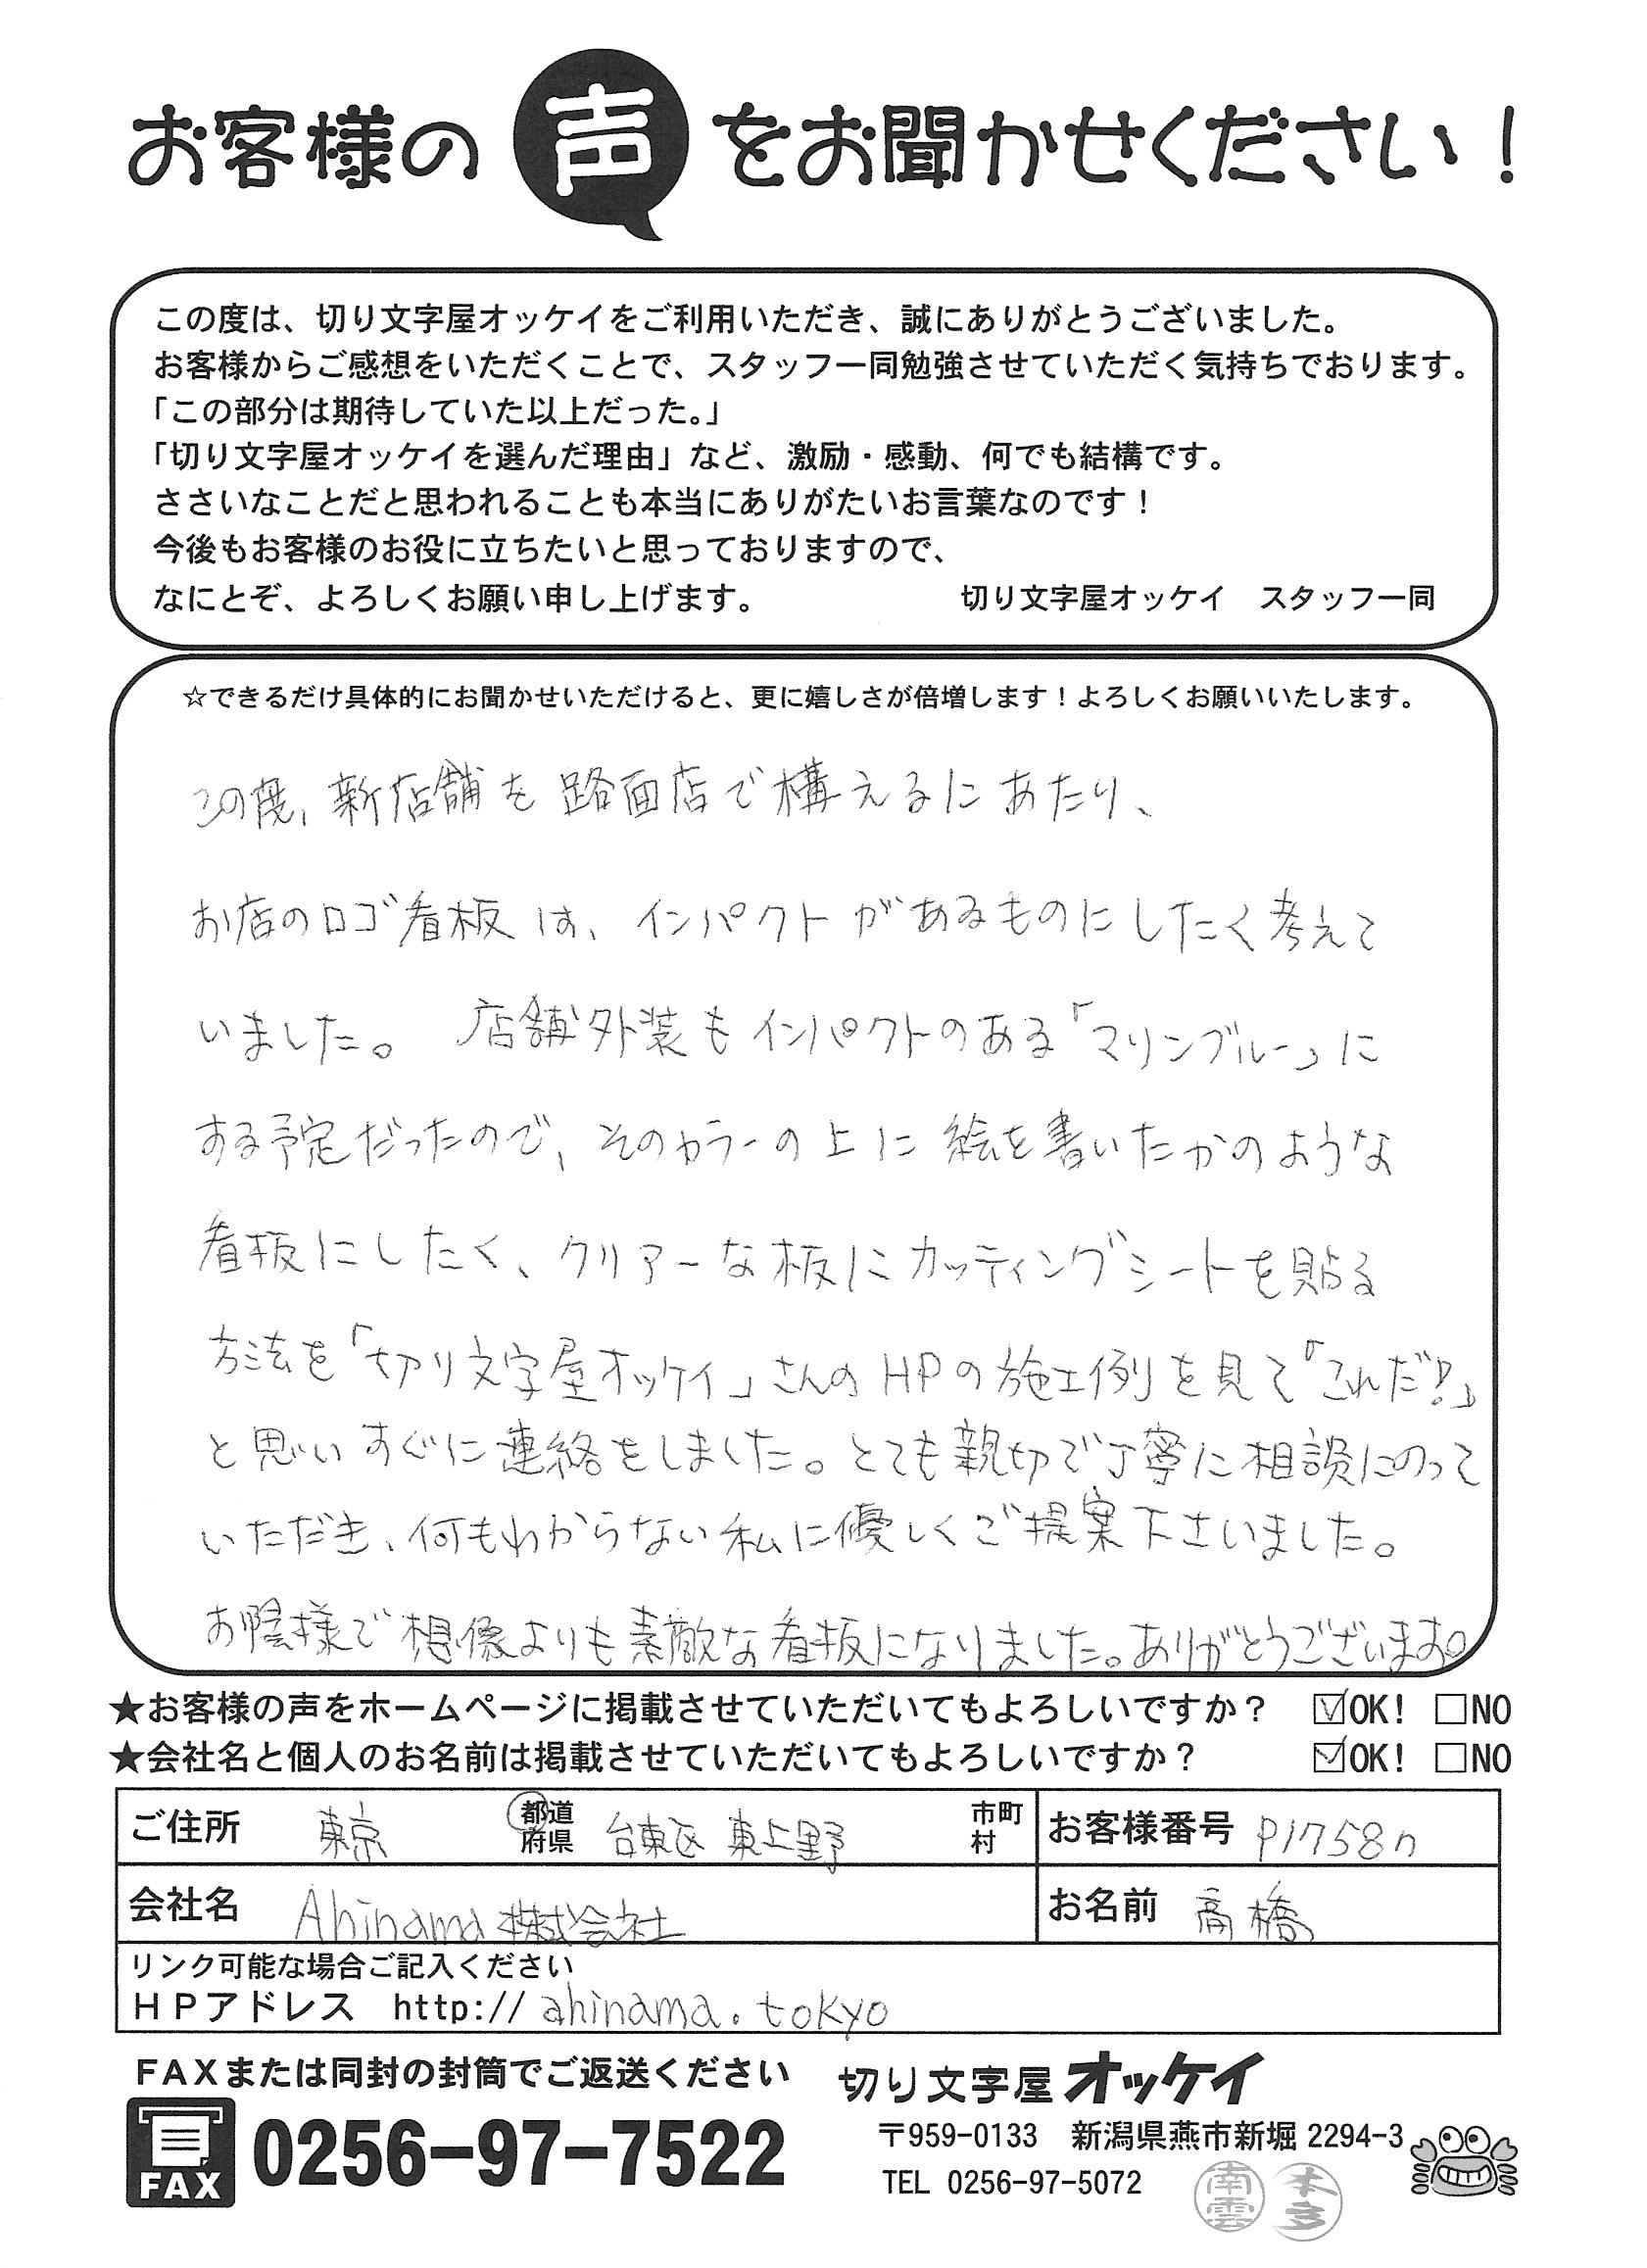 お客様の声をお聞かせください!
この度は、切り文字屋オッケイをご利用いただき、誠にありがとうございました。
お客様からご感想をいただくことで、スタッフ一同勉強させていただく気持ちでおります。
「この部分は期待していた以上だった。」
「切り文字屋オッケイを選んだ理由」など、激励・感動、何でも結構です。
ささいなことだと思われることも本当にありがたいお言葉なのです!
今後もお客様のお役に立ちたいと思っておりますので、
なにとぞ、よろしくお願い申し上げます。 切り文字屋オッケイ スタッフ一同
☆できるだけ具体的にお聞かせいただけると、更に嬉しさが倍増します!よろしくお願いいたします。
この度、新店舗を路面店で構えるにあたり、
お店のロゴ看板は、インパクトがあるものにしたく考えて
いました。 店舗外装もインパクトのある「マリンブルー」に
する予定だったので、そのカラーの上に絵を書いたかのような
看板にしたく、クリアーな板にカッティングシートを貼る
方法を「切り文字屋オッケイ」さんのHPの施工例を見て「これだ!」
と思いすぐに連絡をしました。とても親切で丁寧に相談にのって
いただき、何もわからない私に優しくご提案下さいました。
お陰様で想像よりも素敵な看板になりました。ありがとうございます。
★お客様の声をホームページに掲載させていただいてもよろしいですか? ☑OK! □NO
★会社名と個人のお名前は掲載させていただいてもよろしいですか? ☑OK! □NO
ご住所 東京 都道府県 台東区 東上野 市町村 お客様番号 P17587
会社名 Ahinama株式会社 お名前 高橋
リンク可能な場合ご記入ください
HPアドレス http://ahinama.tokyo
FAXまたは同封の封筒でご返送ください 切り文字屋オッケイ
FAX 0256-97-7522
〒959-0133 新潟県燕市新堀2294-3
TEL 0256-97-5072
南雲 本多